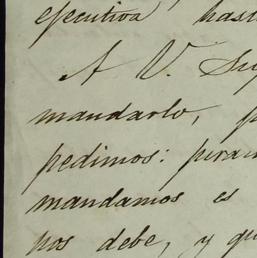 ejecutiva hast
A V. Sup
mandarlo, p
pedimos:
mandamos es
nos debe, y qu